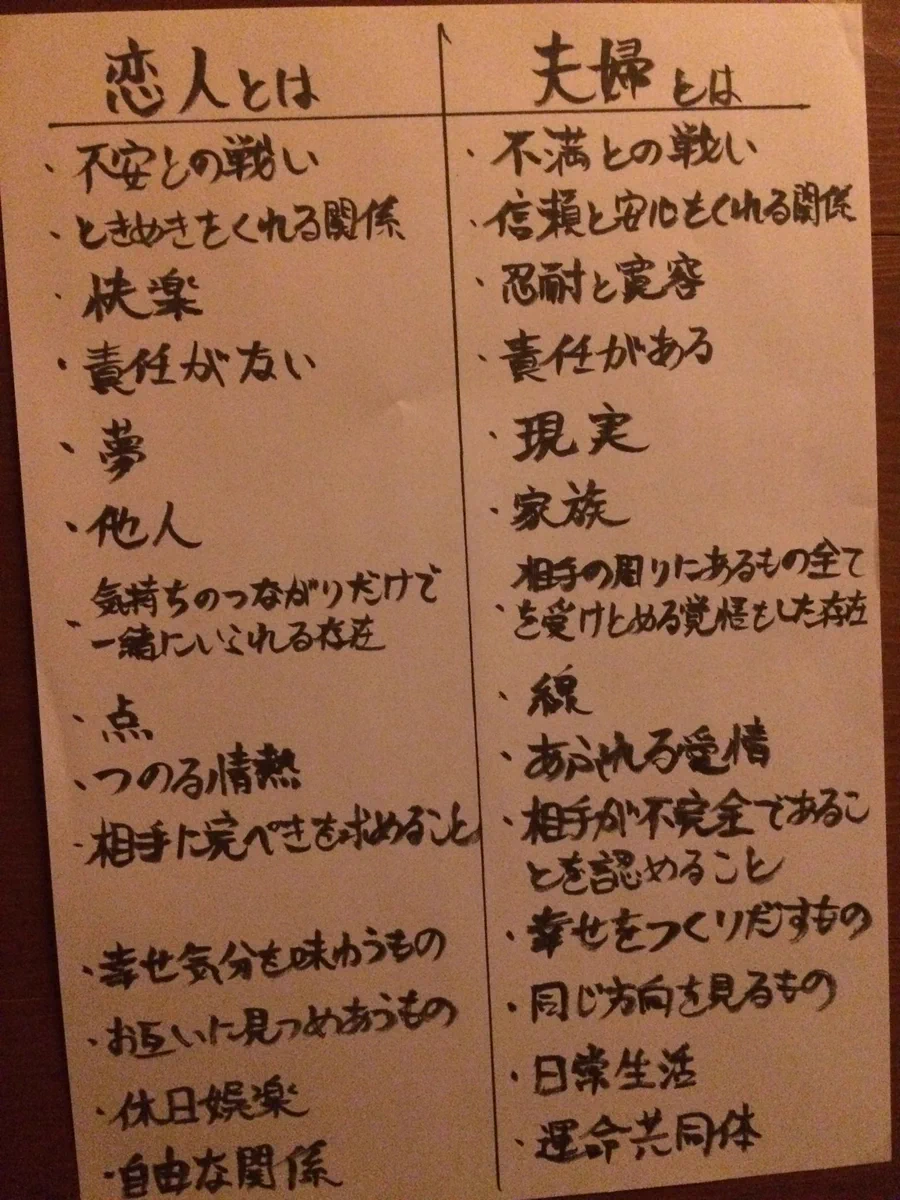 恋人とは
・不安との戦い
・ときめきをくれる関係
・快楽
・責任がない
・夢
・他人
・気持ちのつながりだけで
一緒にいられる存在
・点
・つのる情熱
・相手に完ぺきを求めること
・幸せ気分を味わうもの
・お互いに見つめあうもの
・休日娯楽
・自由な関係
夫婦とは
・不満との戦い
・信頼と安心をくれる関係
・忍耐と寛容
・責任がある
・現実
・家族
・相手の周りにあるもの全て
を受けとめる覚悟もした存在
・線
・あふれる愛情
・相手が不完全であるこ
とを認めること
・幸せをつくりだすもの
・同じ方向を見るもの
・日常生活
・運命共同体